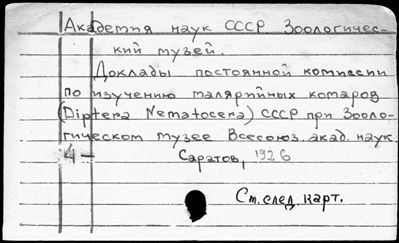 Академия наук СССР Зоологичес-
кий музей.
Доклады постоянной комиссии
по изучению малярийных комаров
(Diptera Nematocera) СССР при Зооло-
гическом музее Всесоюз. акад. наук.
4 -
Саратов, 1926
См. след. карт.